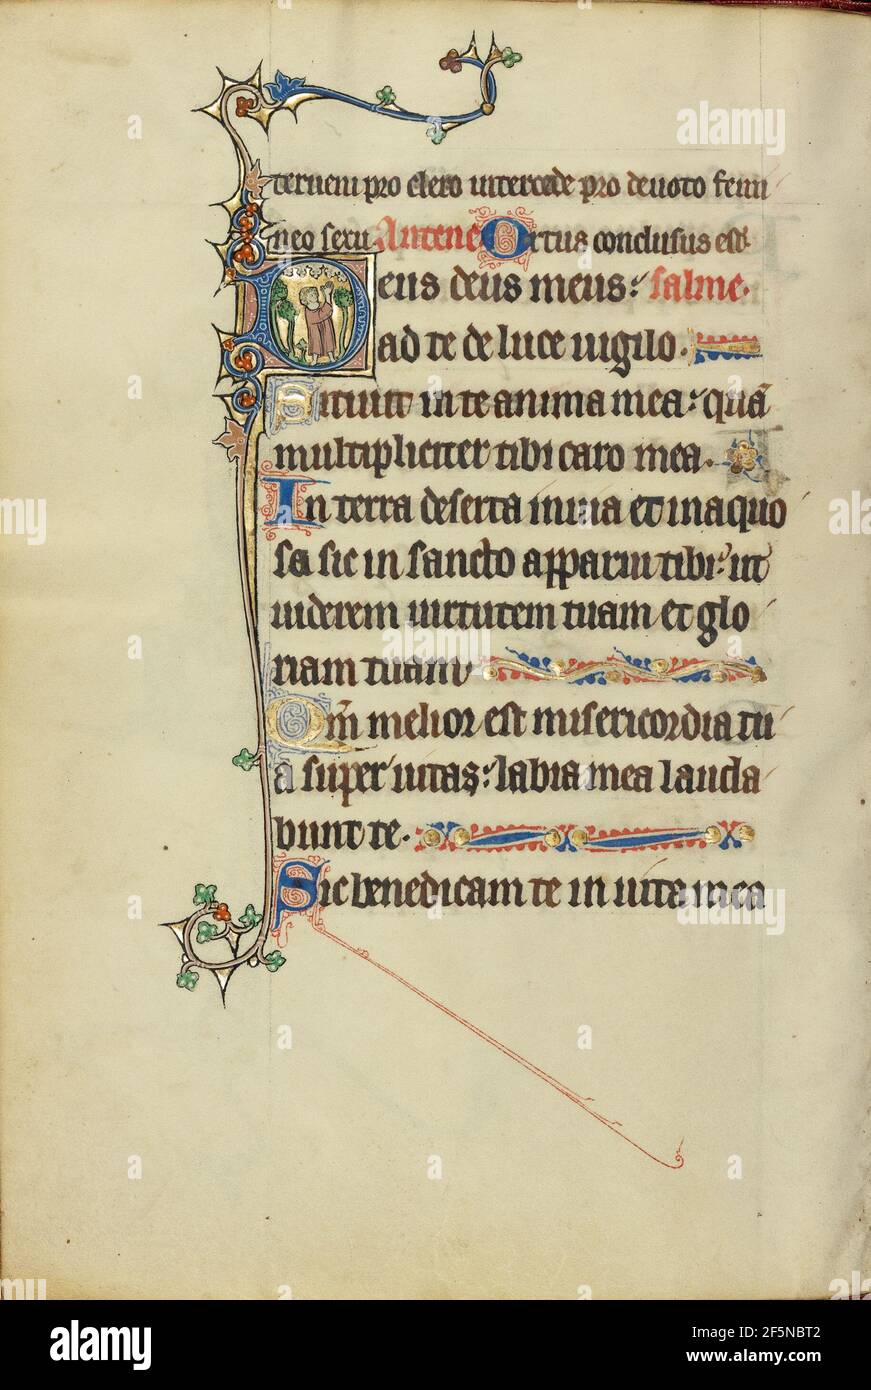 terueni pro clero intercede pro deuoto femi
neo sexu. Antene Ortus conclusus est.
Deus deus meus: salme.
ad te de luce uigilo.
Sitiuit in te anima mea: quā
multipliciter tibi caro mea.
In terra deserta inuia et inaquo
sa sic in sancto apparui tibi: ut
uiderem uirtutem tuam et glo
riam tuam
Qm̄ melior est misericordia tu
a super uitas: labia mea lauda
bunt te.
Sic benedicam te in uita mea
alamy
alamy
Image ID: 2F5NBT2
www.alamy.com